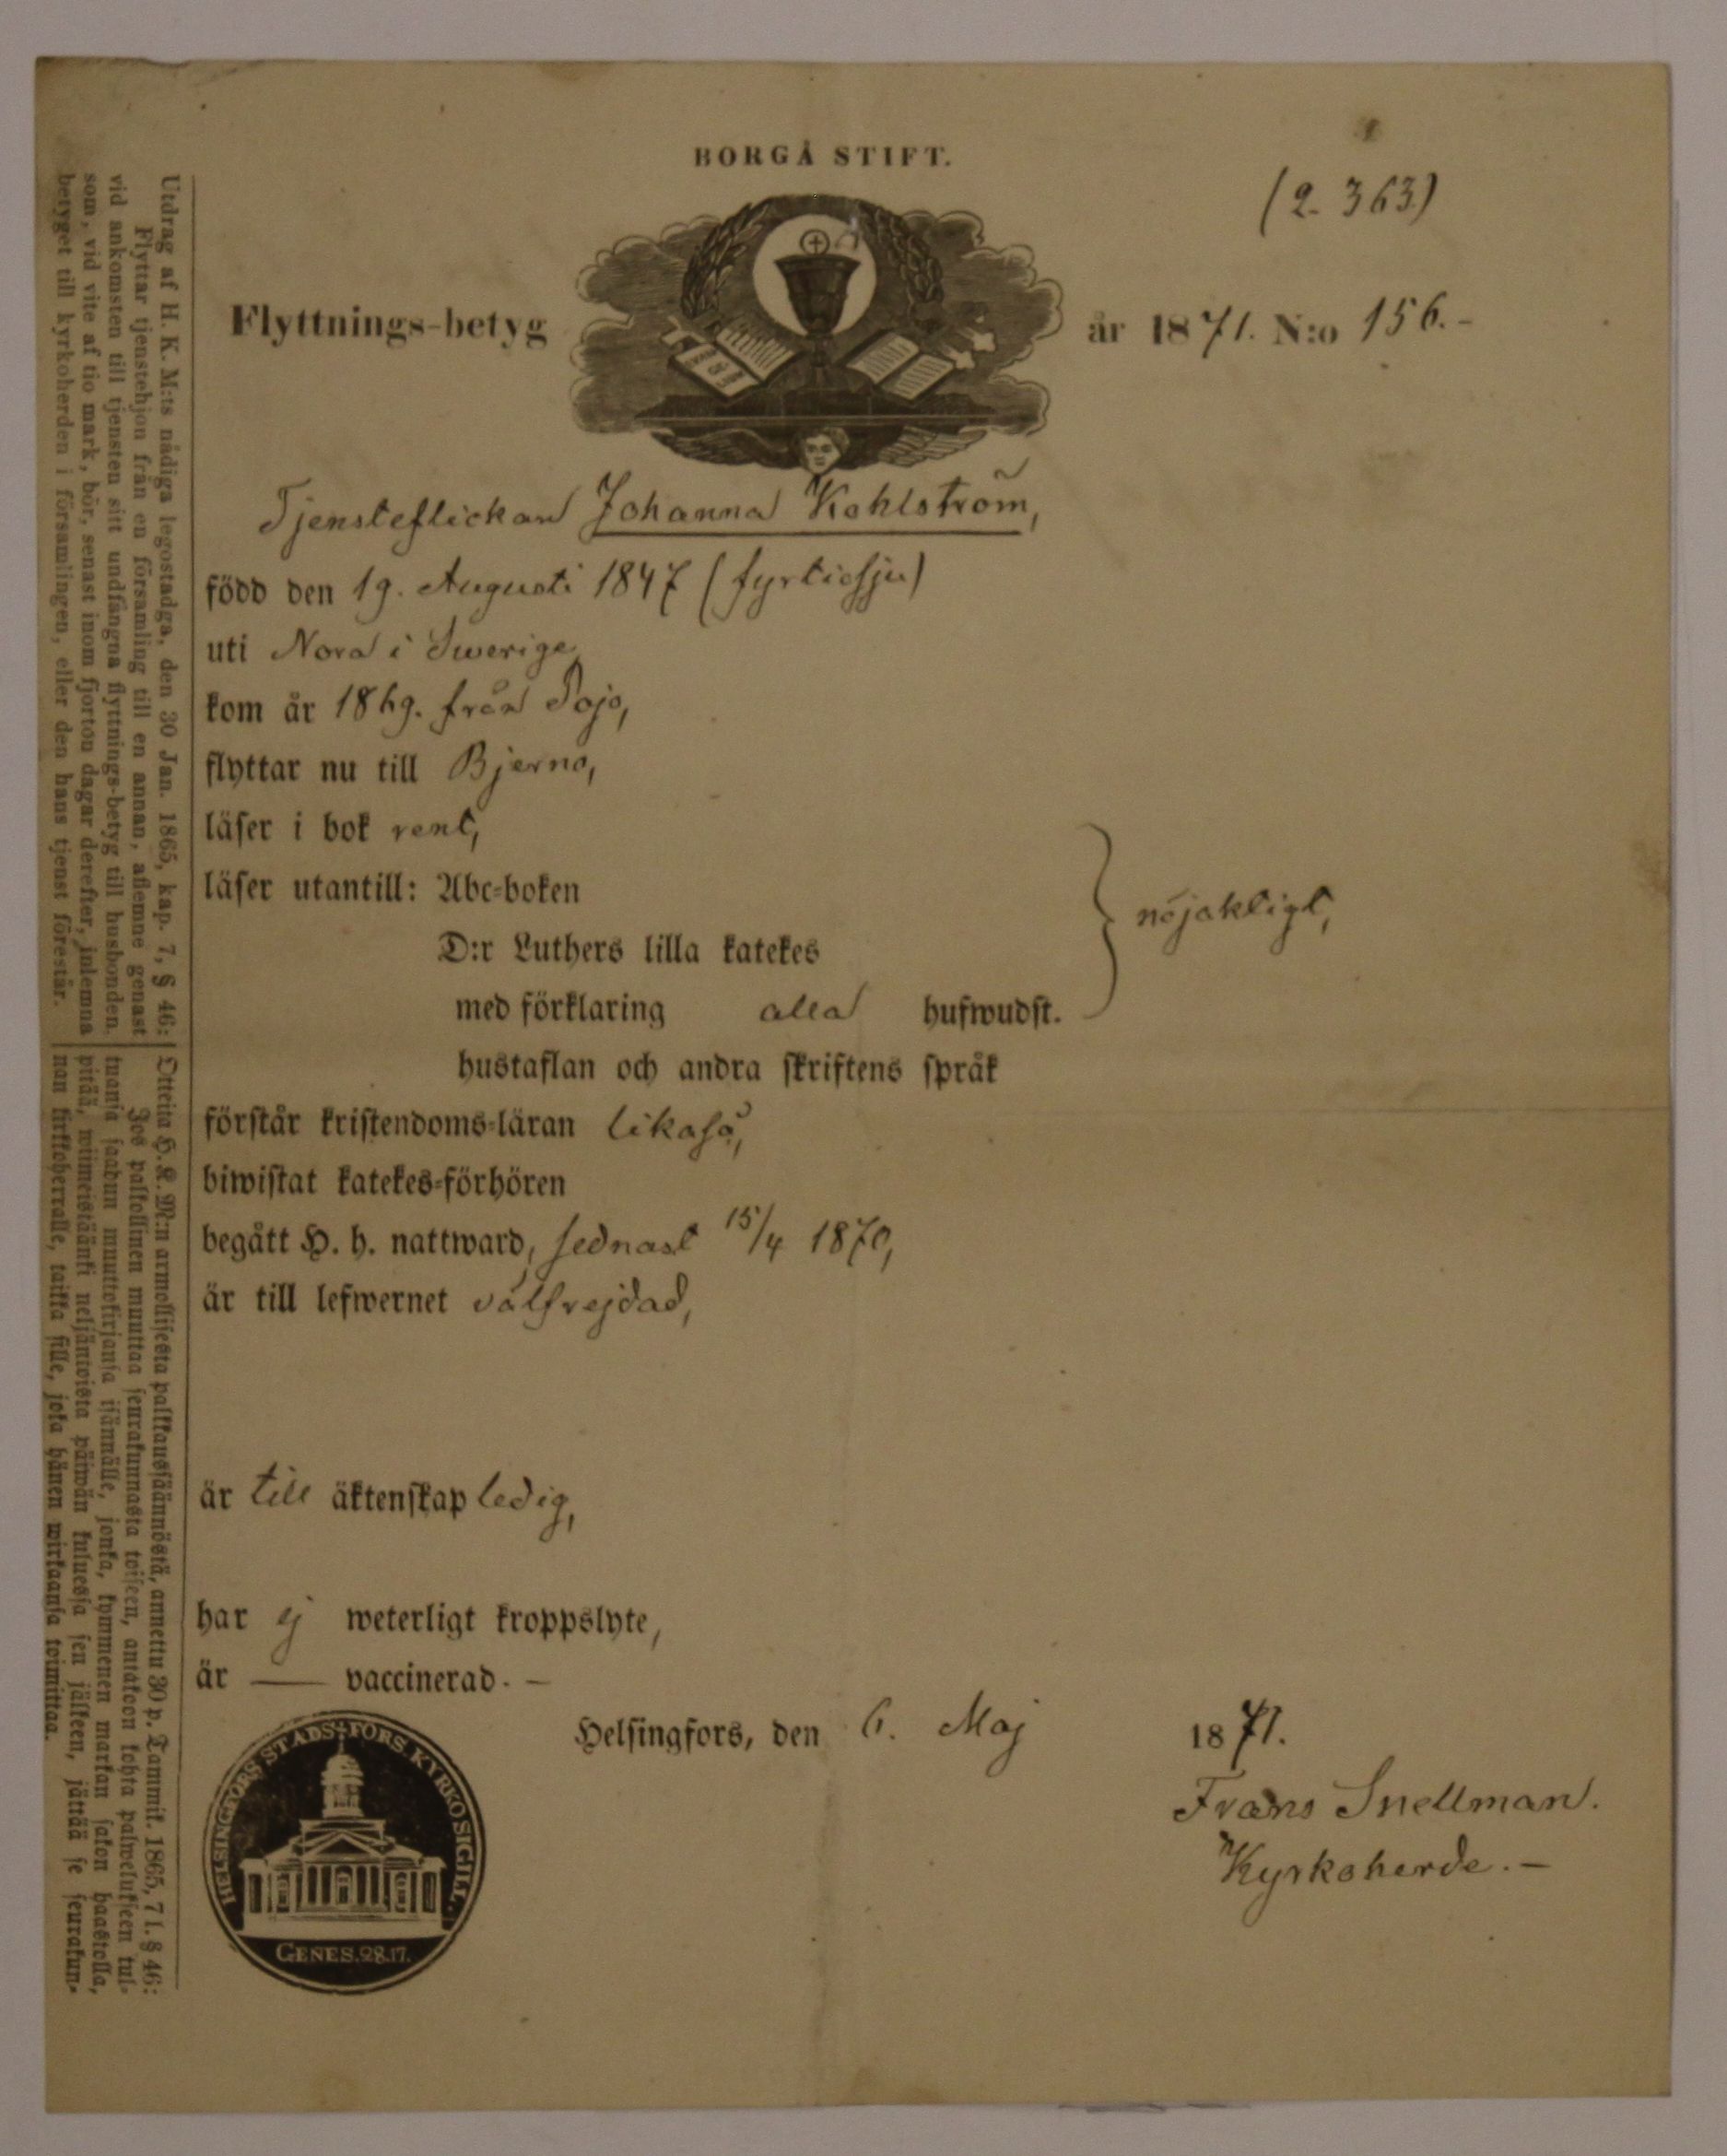 BORGÅ STIFT.
(2. 363)
Flyttnings-betyg år 1871. N:o 156.-
Tjensteflickan Johanna Kohlström,
född den 19. Augusti 1847 (fyrtiosju)
uti Nora i Swerige
kom år 1869. från Pojo,
flyttar nu till Bjerno,
läser i bok rent,
läser utantill: Abc-boken
nöjaktigt,
D:r Luthers lilla katekes
med förklaring alla hufwudst.
hustaflan och andra skriftens språk
förstår kristendoms-läran likaså,
biwistat katekes-förhören
begått H. h. nattward, sednast 15/4 1870,
är till lefwernet välfrejdad,
är till äktenskap ledig,
har ej weterligt kroppslyte,
är — vaccinerad. -
Helsingfors, den 6. Maj 1871.
Frans Snellman.
Kyrkoherde. -
HELSINGFORS STADS FÖRS. KYRKO SIGILL.
GENES. 28.17.
Utdrag af H. K. M:ts nådiga legostadga, den 30 Jan. 1865, kap. 7, § 46:
Flyttar tjenstehjon från en församling till en annan, aflemne genast
vid ankomsten till tjensten sitt undfångna flyttnings-betyg till husbonden,
som, vid vite af tio mark, bör, senast inom fjorton dagar derefter, inlemna
betyget till kyrkoherden i församlingen, eller den hans tjenst förestår.
Otteita H. K. M:n armollisesta palkkaussäännöstä, annettu 30 p. Tammik. 1865, 7 l. § 46:
Jos palkollinen muuttaa seurakunnasta toiseen, antakoon kohta palwelukseen tul-
tuansa saadun muuttokirjansa isännälle, jonka, kymmenen markan sakon haastolla,
pitää, wiimeistäänki neljäntoista päiwän kuluessa sen jälkeen, jättää se seurakun-
nan kirkkoherralle, taikka sille, joka hänen wirkaansa toimittaa.